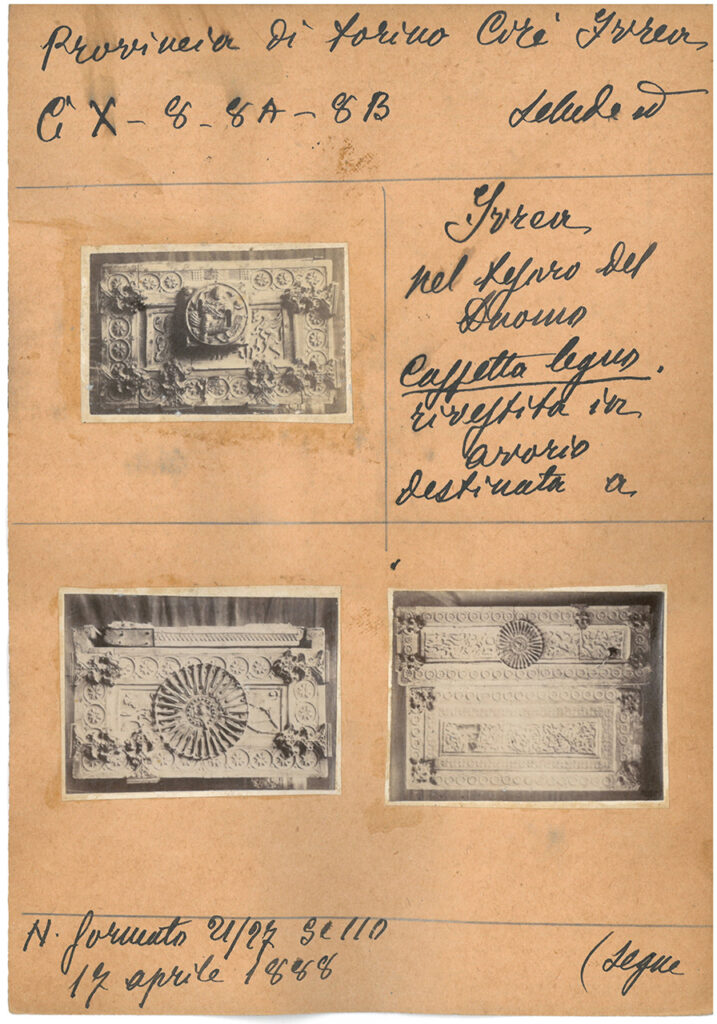 Provincia di Torino Cirè Ivrea
C X - 8 - 8A - 8B
Ivrea
nel tesoro del
Duomo
Cassetta legno.
rivestita in
avorio
destinata a
N. formato 21/27
17 aprile 1888
(segue